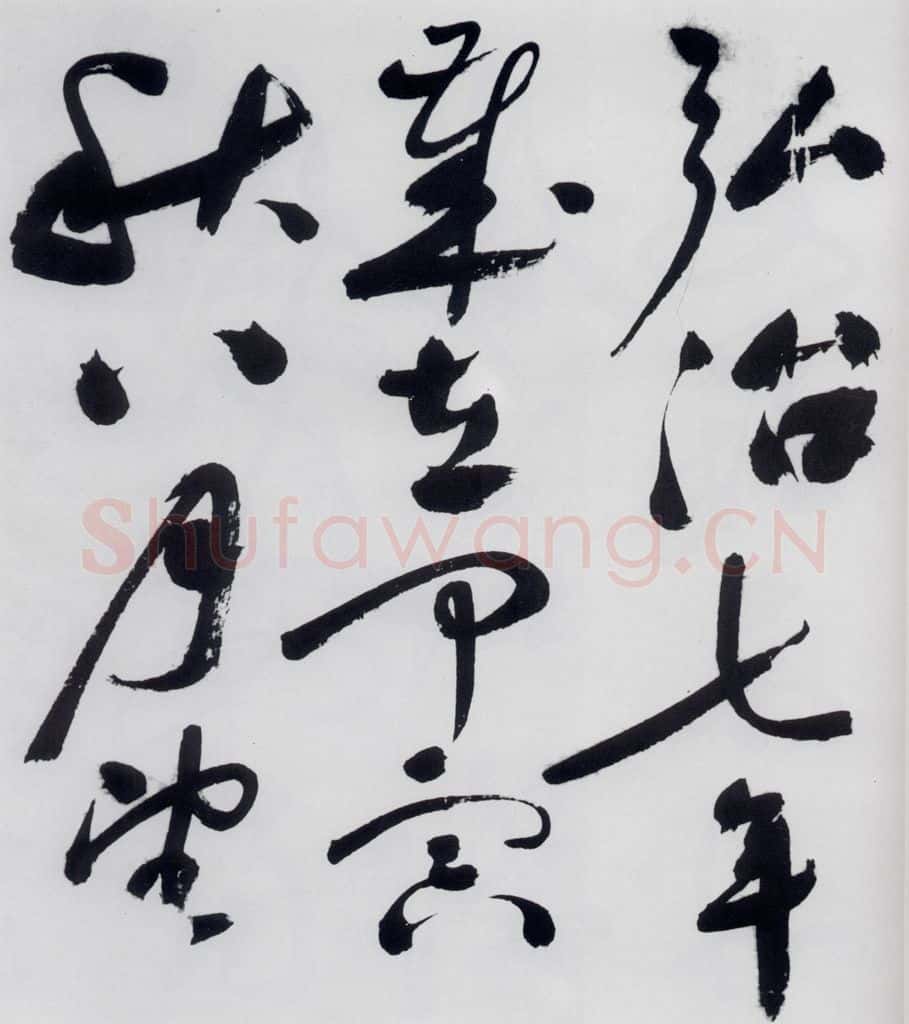 弘治七年
歲在甲寅
秋八月
Shufawang.CN